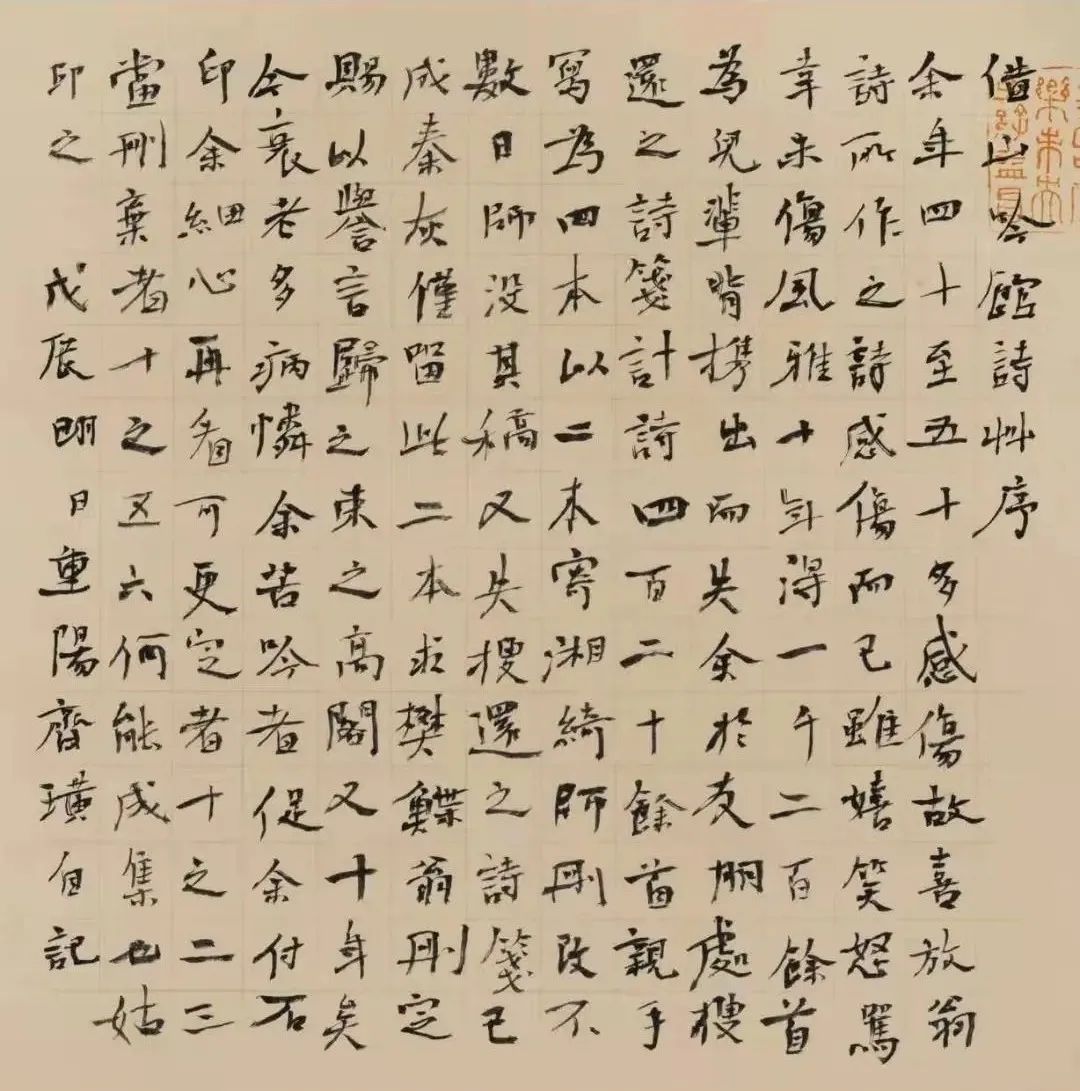 借山吟館詩艸序
余年四十至五十多感傷故喜放翁
詩所作之詩感傷而已雖嬉笑怒罵
幸未傷風雅十年得一千二百餘首
為兒輩背携出而失余於友朋處搜
還之詩箋計詩四百二十餘首親手
寫為四本以二本寄湘綺師刪改不
數日師没其稿又失搜還之詩箋已
成秦灰僅留此二本求樊鰈翁刪定
賜以譽言歸之束之高閣又十年矣
今衰老多病憐余苦吟者促余付石
印余細心再看可更定者十之二三
當刪棄者十之五六何能成集也姑
印之 戊辰明日重陽齊璜自記